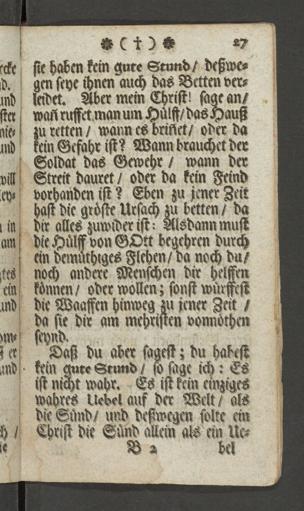 ❀ ( † ) ❀ 27
sie haben kein gute Stund / deßwe-
gen seye ihnen auch das Betten ver-
leidet. Aber mein Christ! sage an /
wañ ruffet man um Hülff / das Hauß
zu retten / wann es briñet / oder da
kein Gefahr ist? Wann brauchet der
Soldat das Gewehr / wann der
Streit dauret / oder da kein Feind
vorhanden ist? Eben zu jener Zeit
hast die gröste Ursach zu betten / da
dir alles zuwider ist: Alsdann must
die Hülff von GOtt begehren durch
ein demüthiges Flehen / da noch du /
noch andere Menschen dir helffen
können / oder wollen; sonst würffest
die Waaffen hinweg zu jener Zeit /
da sie dir am mehristen vonnöthen
seynd.
Daß du aber sagest; du habest
kein gute Stund / so sage ich: Es
ist nicht wahr. Es ist kein einziges
wahres Uebel auf der Welt / als
die Sünd / und deßwegen solte ein
Christ die Sünd allein als ein Ue-
B 2 bel